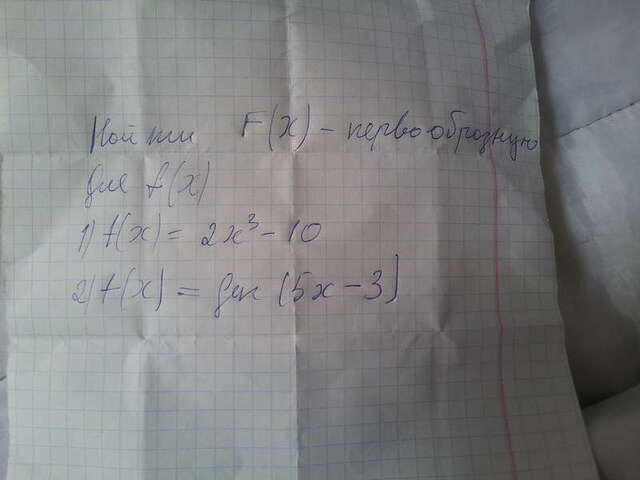 Найти F(x) - первообразную
для f(x)
1) f(x) = 2x³ - 10
2) f(x) = (5x - 3)